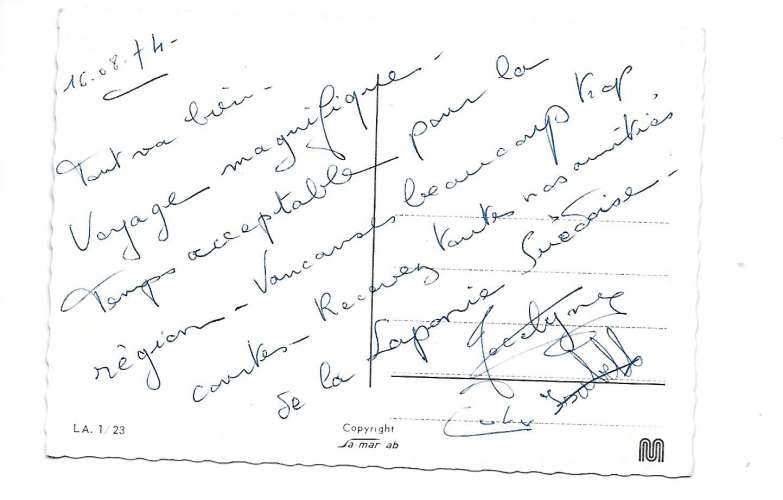 16.08.74-
Tout va bien -
Voyage magnifique -
Temps acceptable pour la
région - Vancances beaucoup trop
courtes - Recevez toutes nos amitiés
de la Laponie Suédoise -
Jocelyne
LA. 1/23
Copyright
Sa-mar ab